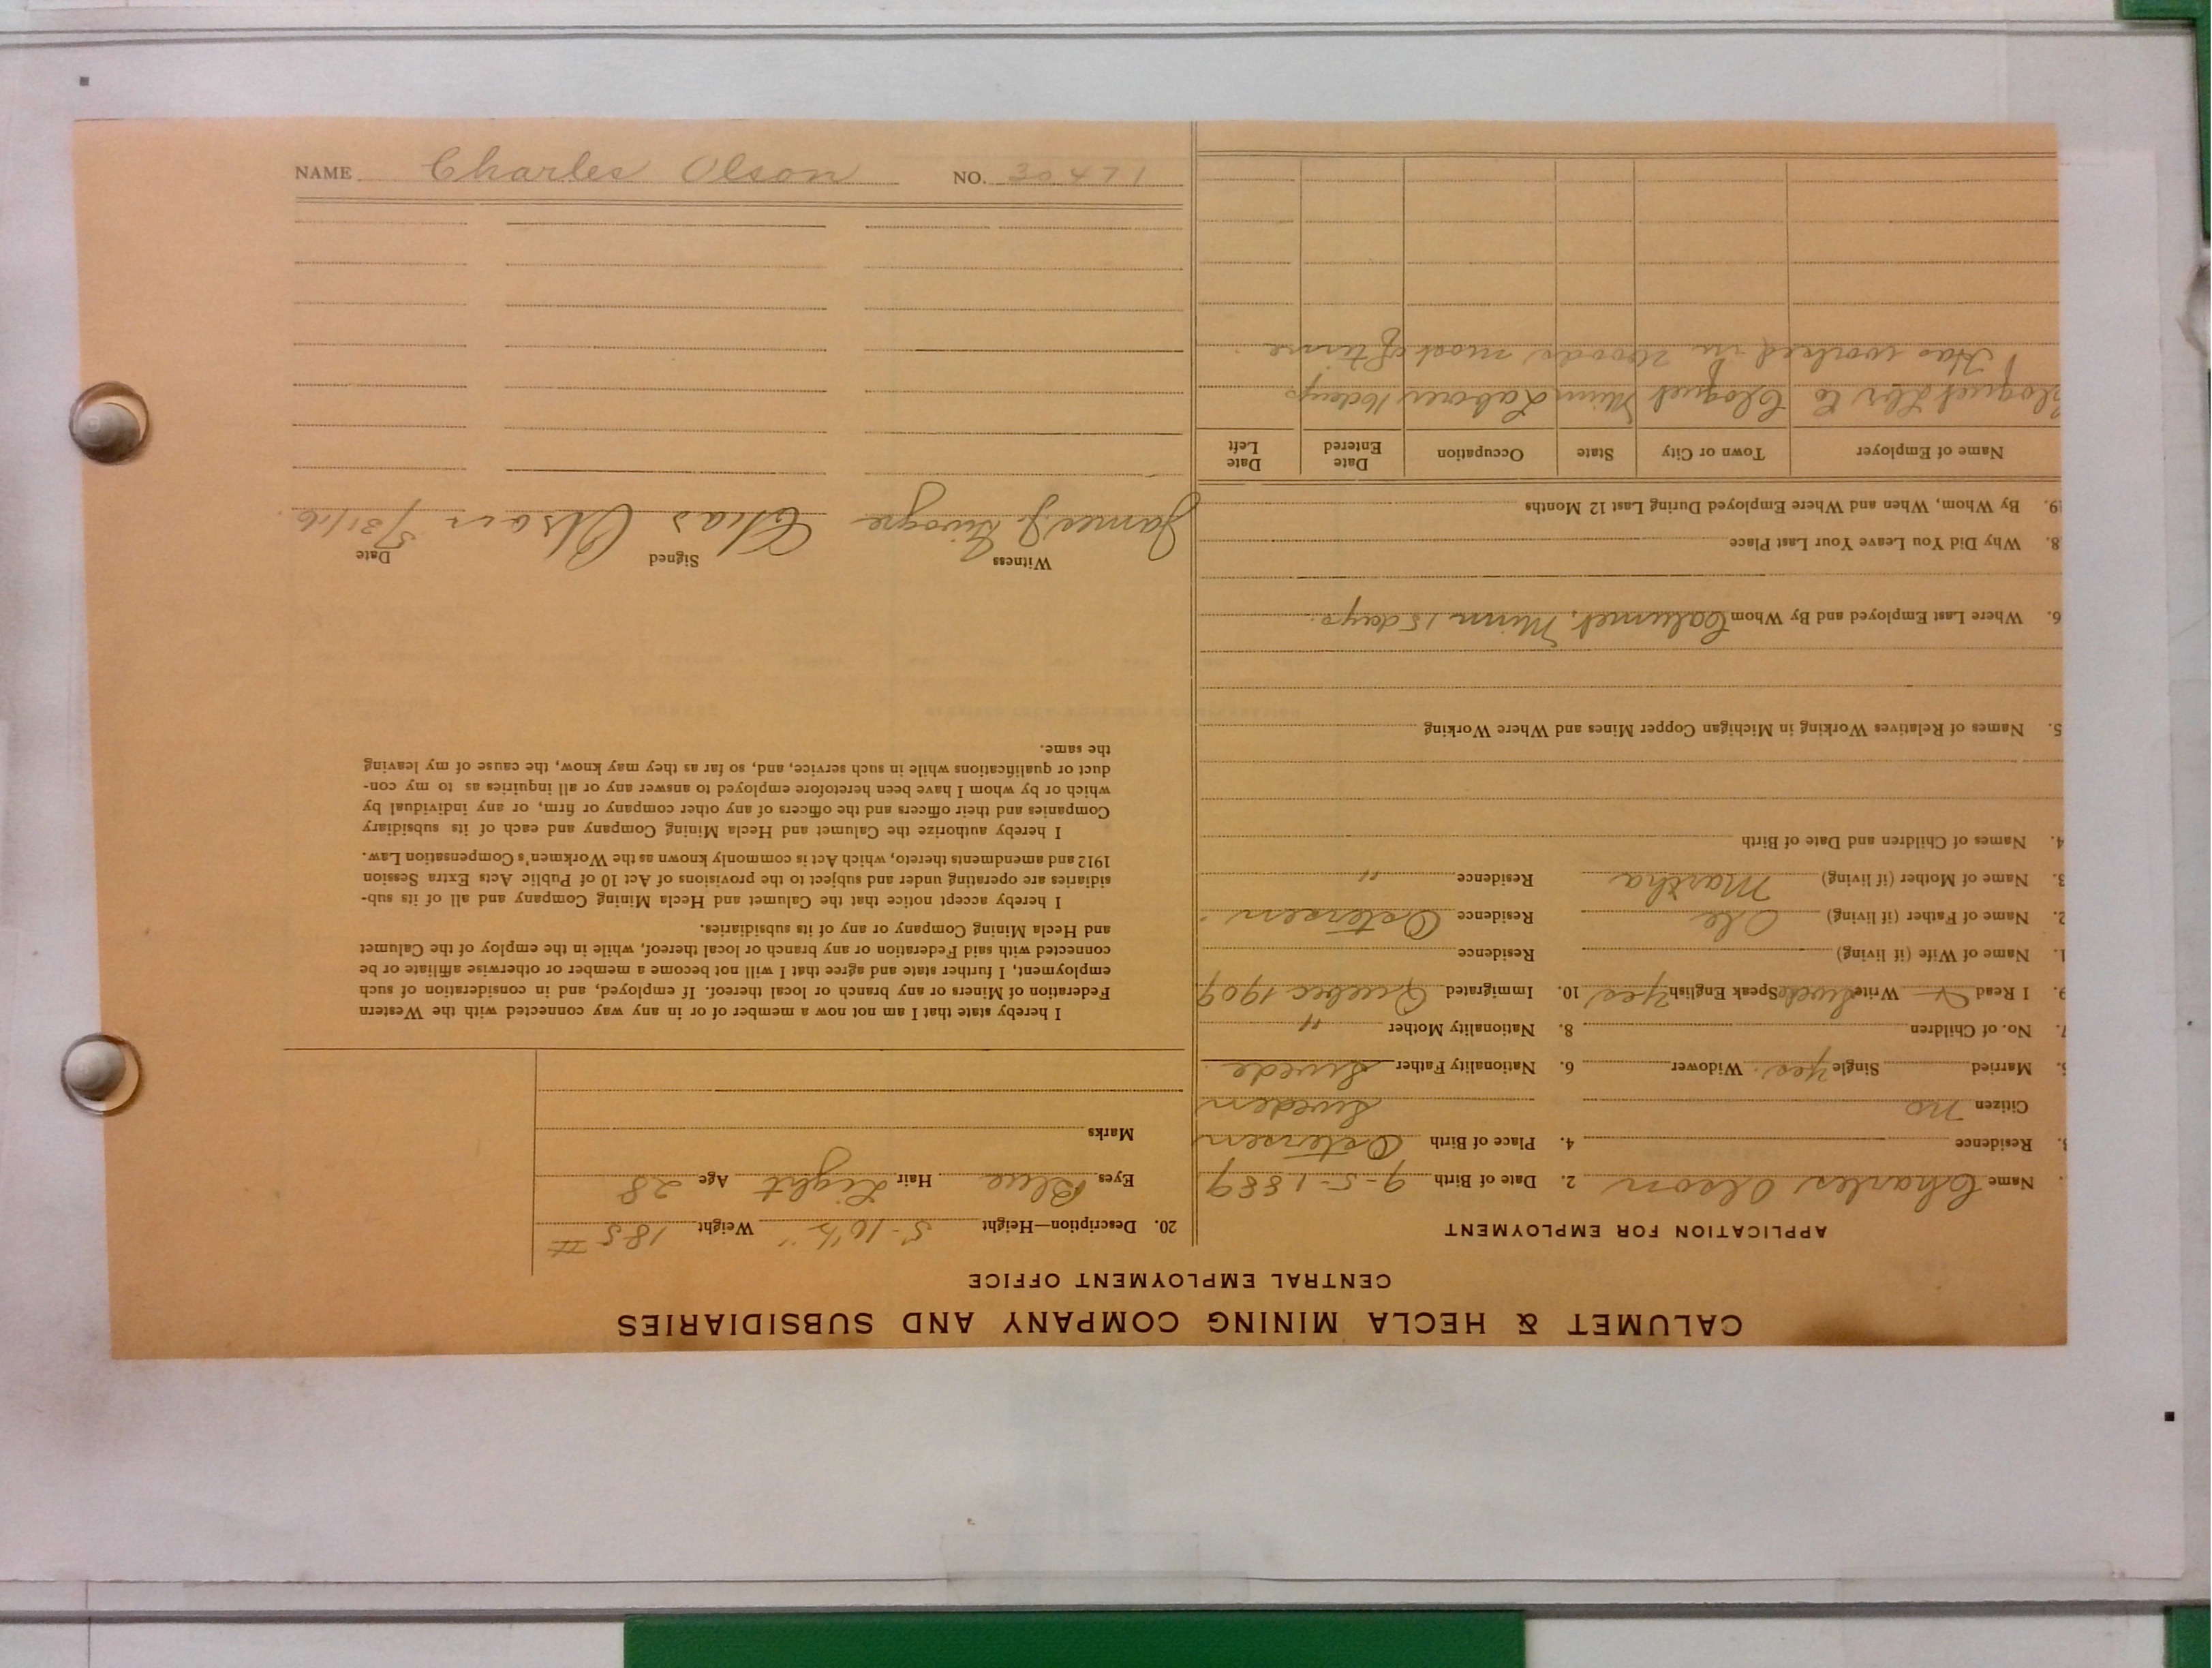 NAME Charles Olson NO. 30471
CALUMET & HECLA MINING COMPANY AND SUBSIDIARIES
CENTRAL EMPLOYMENT OFFICE
APPLICATION FOR EMPLOYMENT
. Name Charles Olson 2. Date of Birth 9-5-1889
3. Residence 4. Place of Birth Ostersen
Citizen no Sweden
5. Married Single yes. Widower 6. Nationality Father Swede
7. No. of Children 8. Nationality Mother "
9. I Read Write Swede Speak English yes 10. Immigrated Quebec 1909
1. Name of Wife (if living) Residence
2. Name of Father (if living) Ole Residence Ostersen
3. Name of Mother (if living) Martha Residence "
4. Names of Children and Date of Birth
5. Names of Relatives Working in Michigan Copper Mines and Where Working
6. Where Last Employed and By Whom Calumet, Minn 15 days.
8. Why Did You Leave Your Last Place
19. By Whom, When and Where Employed During Last 12 Months
Name of Employer Town or City State Occupation Date Entered Date Left
Cloquet Lbr Co Cloquet Minn Laborer 16 days
Has worked in woods most of time
20. Description—Height 5-10½" Weight 185 #
Eyes Blue Hair Light Age 28
Marks
I hereby state that I am not now a member of or in any way connected with the Western
Federation of Miners or any branch or local thereof. If employed, and in consideration of such
employment, I further state and agree that I will not become a member or otherwise affiliate or be
connected with said Federation or any branch or local thereof, while in the employ of the Calumet
and Hecla Mining Company or any of its subsidiaries.
I hereby accept notice that the Calumet and Hecla Mining Company and all of its sub-
sidiaries are operating under and subject to the provisions of Act 10 of Public Acts Extra Session
1912 and amendments thereto, which Act is commonly known as the Workmen's Compensation Law.
I hereby authorize the Calumet and Hecla Mining Company and each of its subsidiary
Companies and their officers and the officers of any other company or firm, or any individual by
which or by whom I have been heretofore employed to answer any or all inquiries as to my con-
duct or qualifications while in such service, and, so far as they may know, the cause of my leaving
the same.
Witness Signed Date
James J. Chas Olson 5/31/16